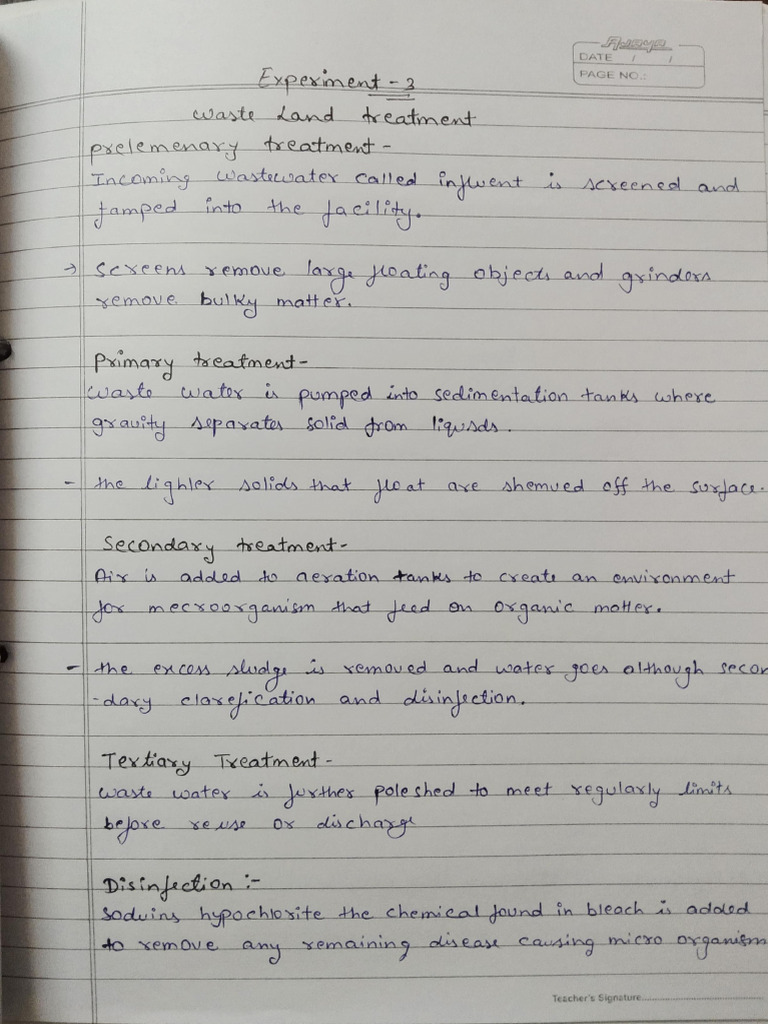 Ajaya
DATE / /
PAGE NO.:
Experiment - 3
Waste Land treatment
prelemenary treatment -
Incoming wastewater called influent is screened and
pamped into the facility.
→ Screens remove large floating objects and grinders
remove bulky matter.
Primary treatment -
Waste water is pumped into sedimentation tanks where
gravity separates solid from liqusds.
- the lighler solids that float are shemved off the surface.
Secondary treatment -
Air is added to aeration tanks to create an environment
for mecroorganism that feed on organic motter.
- the excess sludge is removed and water goes although secon
-dary clarefication and disinfection.
Tertiary Treatment -
Waste water is further poleshed to meet regularly limits
before reuse or discharge
Disinfection :-
Sodvins hypochlorite the chemical found in bleach is added
to remove any remaining disease causing micro organism
Teacher's Signature